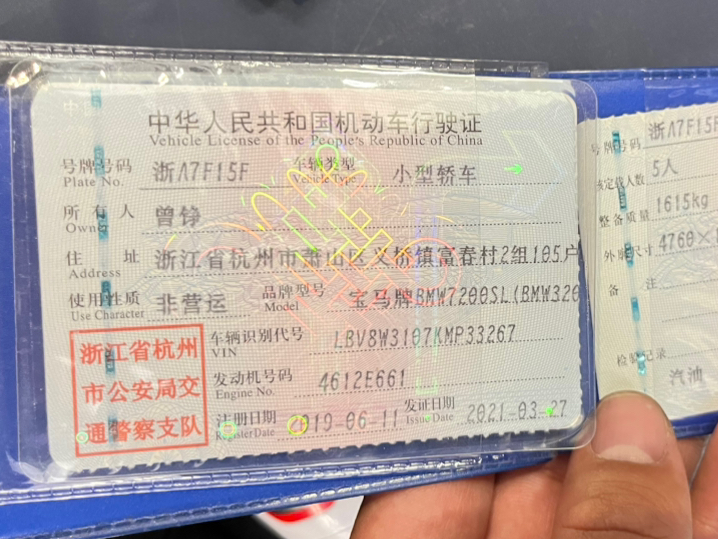 中华人民共和国机动车行驶证
Vehicle License of the People's Republic of China
号牌号码 浙A7F15F 车辆类型 小型轿车
Plate No. Vehicle Type
所有人 曾铮
Owner
住址 浙江省杭州市萧山区义桥镇富春村2组105户
Address
使用性质 非营运 品牌型号 宝马牌BMW7200SL(BMW320
Use Character Model
浙江省杭州
市公安局交
通警察支队
车辆识别代号 LBV8W3107KMP33267
VIN
发动机号码 4612E661
Engine No.
注册日期 2019-06-11 发证日期 2021-03-27
Register Date Issue Date
号牌号码 浙A7F15F
核定载人数 5人
整备质量 1615kg
外廓尺寸 4760×1
备注
检验记录
汽油